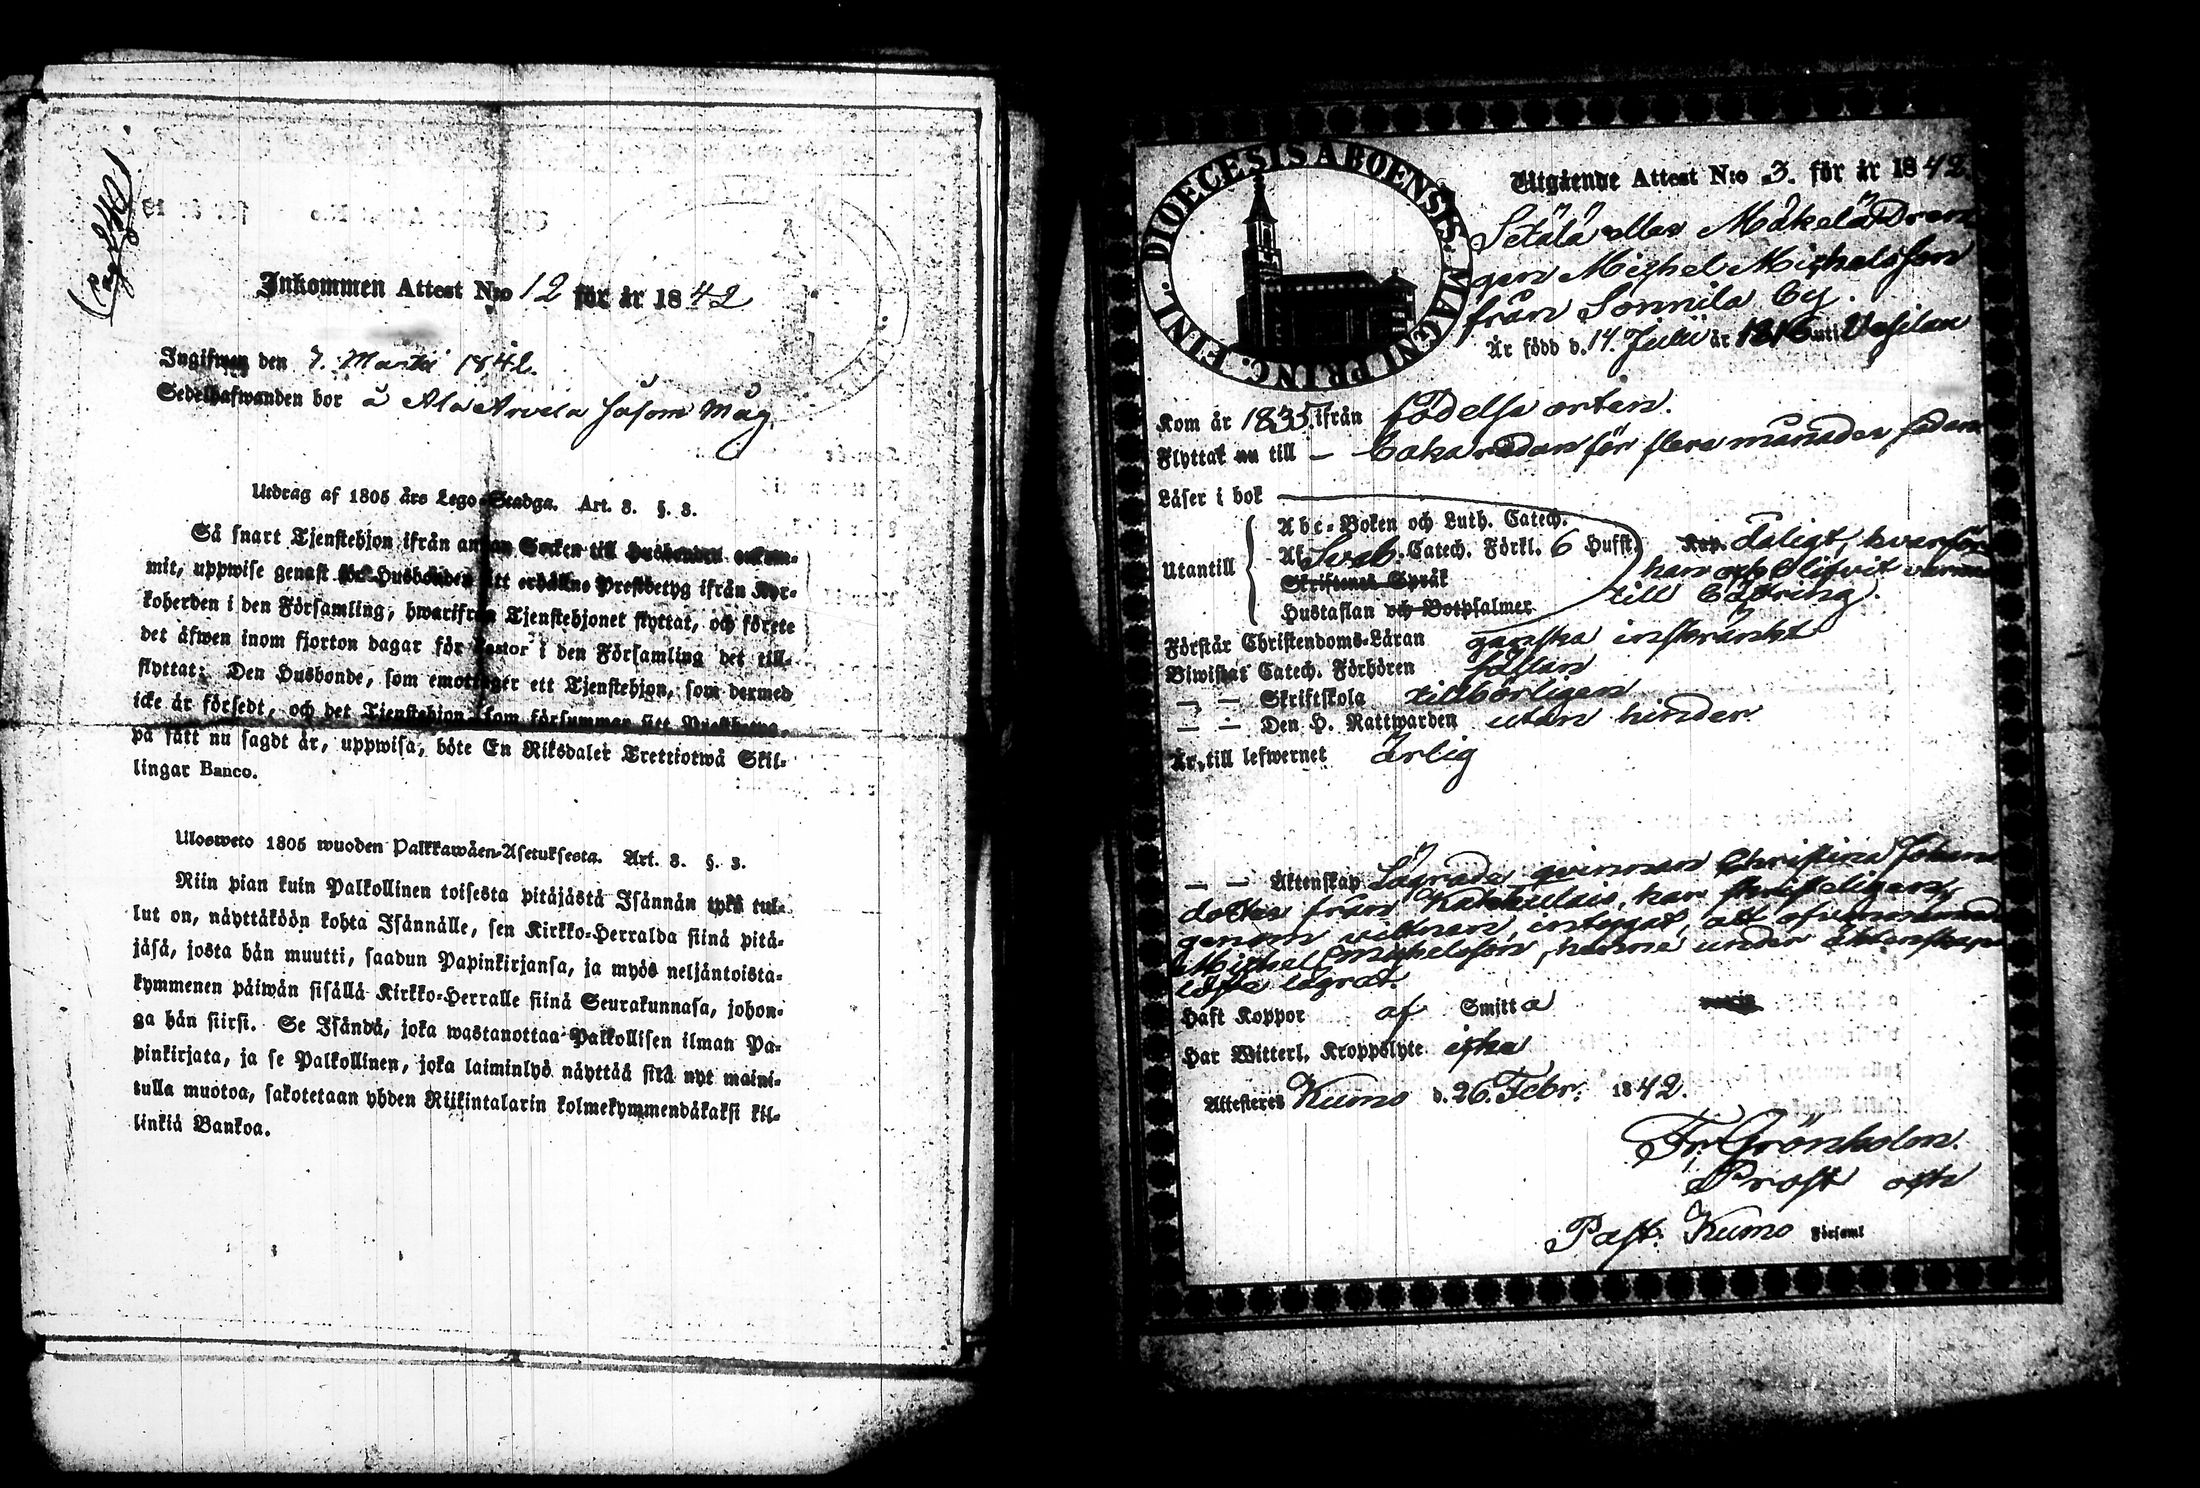 (pag. 340.)
Inkommen Attest N:o 12 för år 1842
Ingifwen den 7. Martii 1842.
Sedelhafwanden bor å Ala Arvela såsom Måg.
Utdrag af 1805 års Lego-Stadga. Art. 3. §. 3.
Så snart Tjenstehjon ifrån annan Socken till Husbonden ankom-
mit, uppwise genast för Husbonden sitt erhållne Prestbetyg ifrån Kyr-
koherden i den Församling, hwarifrån Tjenstehjonet flyttat, och förete
det äfwen inom fjorton dagar för Pastor i den Församling det till-
flyttat; Den Husbonde, som emottager ett Tjenstehjon, som dermed
icke är försedt, och det Tjenstehjon, som försummar sitt Prestbetyg,
på sätt nu sagdt är, uppwisa, böte En Riksdaler Trettiotwå Skil-
lingar Banco.
Ulosweto 1805 wuoden Palkkawäen-Asetuksesta. Art. 3. §. 3.
Niin pian kuin Palkollinen toisesta pitäjästä Isännän tykö tul-
lut on, näyttäköön kohta Isännälle, sen Kirkko-Herralda siinä pitä-
jäsä, josta hän muutti, saadun Papinkirjansa, ja myös neljäntoista-
kymmenen päiwän sisällä Kirkko-Herralle siinä Seurakunnasa, johon-
ga hän siirsi. Se Isändä, joka wastanottaa Palkollisen ilman Pa-
pinkirjata, ja se Palkollinen, joka laiminlyö näyttää sitä nyt maini-
tulla muotoa, sakotetaan yhden Riikintalarin kolmekymmendäkaksi kil-
linkiä Bankoa.
DIOECESIS ABOENSIS. MAGNI PRINC. FINL.
Utgående Attest N:o 3. för år 1842.
Setälä eller Mäkelä Dren
gen Michel Michelsson
från Sonnila by.
Är född d. 14. Julii år 1816 uti
Kom år 1835. ifrån födelse orten.
Flyttat nu till — redan för flera månader sedan
Läser i bok
Utantill
Abc-Boken och Luth. Catech.
Af Sveb. Catech. Förkl. 6 Hufst.
Skriftenes Språk
Hustaflan och Botpsalmer
dåligt, hvarför
han ock blifvit varnad
till bättring.
Förstår Christendoms-Läran ganska inskränkt
Biwistat Catech. Förhören sällan
— — Skriftskola tillbörligen
— — Den H. Nattwarden utan hinder
Är, till lefwernet ärlig
— — Äktenskap Lägrade qvinnan Christina Johans
dotter från Kakkulais, har skrifteligen,
genom vittnen, intygat, att ofvannämnde
Michel Michelsson, henne under äktenskaps
löfte lägrat.
Haft Koppor af Smitta
Har Witterl. Kroppslyte icke
Attesteras Kumo d. 26. Febr. 1842.
Fr. Grönholm.
Prost och
Past: Kumo Församl